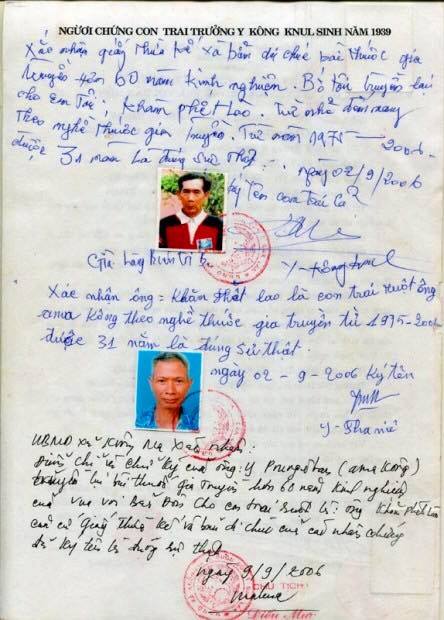 NGƯỜI CHỨNG CON TRAI TRƯỞNG Y KÔNG KNUL SINH NĂM 1939
Xác nhận giấy thừa kế và bản di chúc bài thuốc gia
truyền hơn 60 năm kinh nghiệm. Bố tôi truyền lại
cho em tôi; Khăm Phết Lao. Từ nhỏ đến nay
theo nghề thuốc gia truyền. Từ năm 1975 — 2006
được 31 năm là đúng sự thật.
ngày 02/9/2006
ký tên con trai cả
Y-Kông Knul
Già làng buôn Trí B
Xác nhận ông = Khăm Phết lao là con trai ruột ông
ama Kông theo nghề thuốc gia truyền từ 1975-2006
được 31 năm là đúng sử thật.
ngay 02 - 9 - 2006 Ký tên
UBND xã Krông Na Xác nhận:
chữ ký của ông: Y Prung (ama Kông)
bài thuốc gia truyền hơn 60 năm kinh nghiệm
của vua voi Bản Đôn cho con trai ruột là: ông Khăm Phết Lào
căn cứ giấy thừa kế và bản di chúc của
đã ký tên là đúng sự thật
ngày 9/9/2006
CHỦ TỊCH